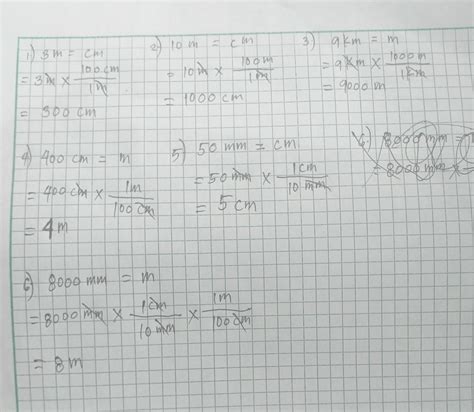 1) 3m = cm
= 3m x 100cm / 1m
= 300 cm
2) 10 m = cm
= 10m x 100m / 1m
= 1000 cm
3) 9km = m
= 9km x 1000m / 1km
= 9000 m
4) 400 cm = m
= 400 cm x 1m / 100 cm
= 4m
5) 50 mm = cm
= 50 mm x 1cm / 10 mm
= 5 cm
6) 8000 mm =
= 8000 mm x
6) 8000 mm = m
= 8000 mm x 1cm / 10 mm x 1m / 100 cm
= 8m